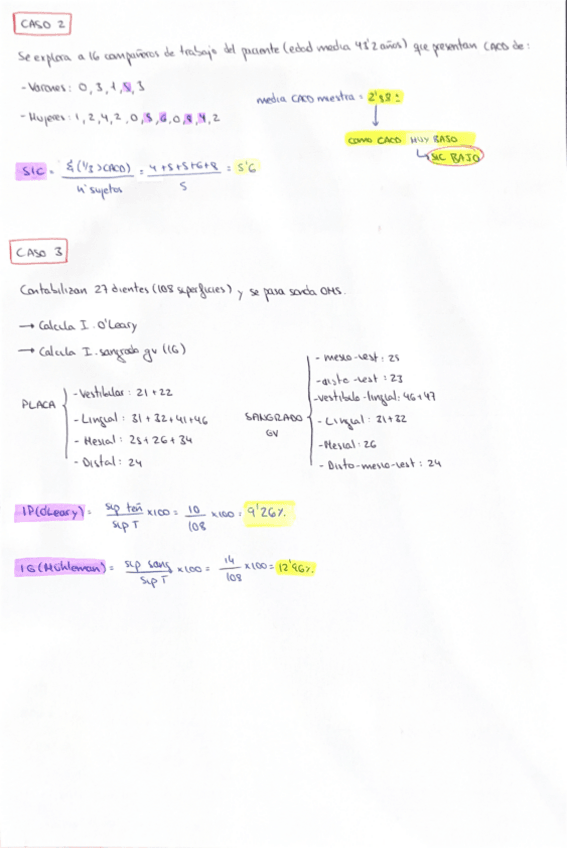 CASO 2
Se explora a 16 compañeros de trabajo del paciente (edad media 43'2 años) que presentan CAOD de:
- Varones: 0, 3, 1, 8, 3
- Mujeres: 1, 2, 4, 2, 0, 5, 6, 0, 4, 2
media CAOD muestra =
COMO CAOD MUY BAJO
SIC BAJO
SIC = Σ(1/3 > CAOD) / nº sujetos = 4+5+5+6+8 / 5 = 5'6
CASO 3
Contabilizan 27 dientes (108 superficies) y se pasa sonda OMS.
→ Calcula I. O'Leary
→ Calcula I. sangrado gv (IG)
PLACA
- Vestibular: 21 + 22
- Lingual: 31 + 32 + 41 + 46
- Mesial: 25 + 26 + 34
- Distal: 24
SANGRADO GV
- mesio-vest: 25
- disto-vest: 23
- vestibulo-lingual: 46+47
- Lingual: 31+32
- Mesial: 26
- Disto-mesio-vest: 24
IP (O'Leary) = sup teñ / sup T x100 = 10 / 108 x100 = 9'26%
IG (Mühleman) = sup sang / sup T x100 = 14 / 108 x100 = 12'96%